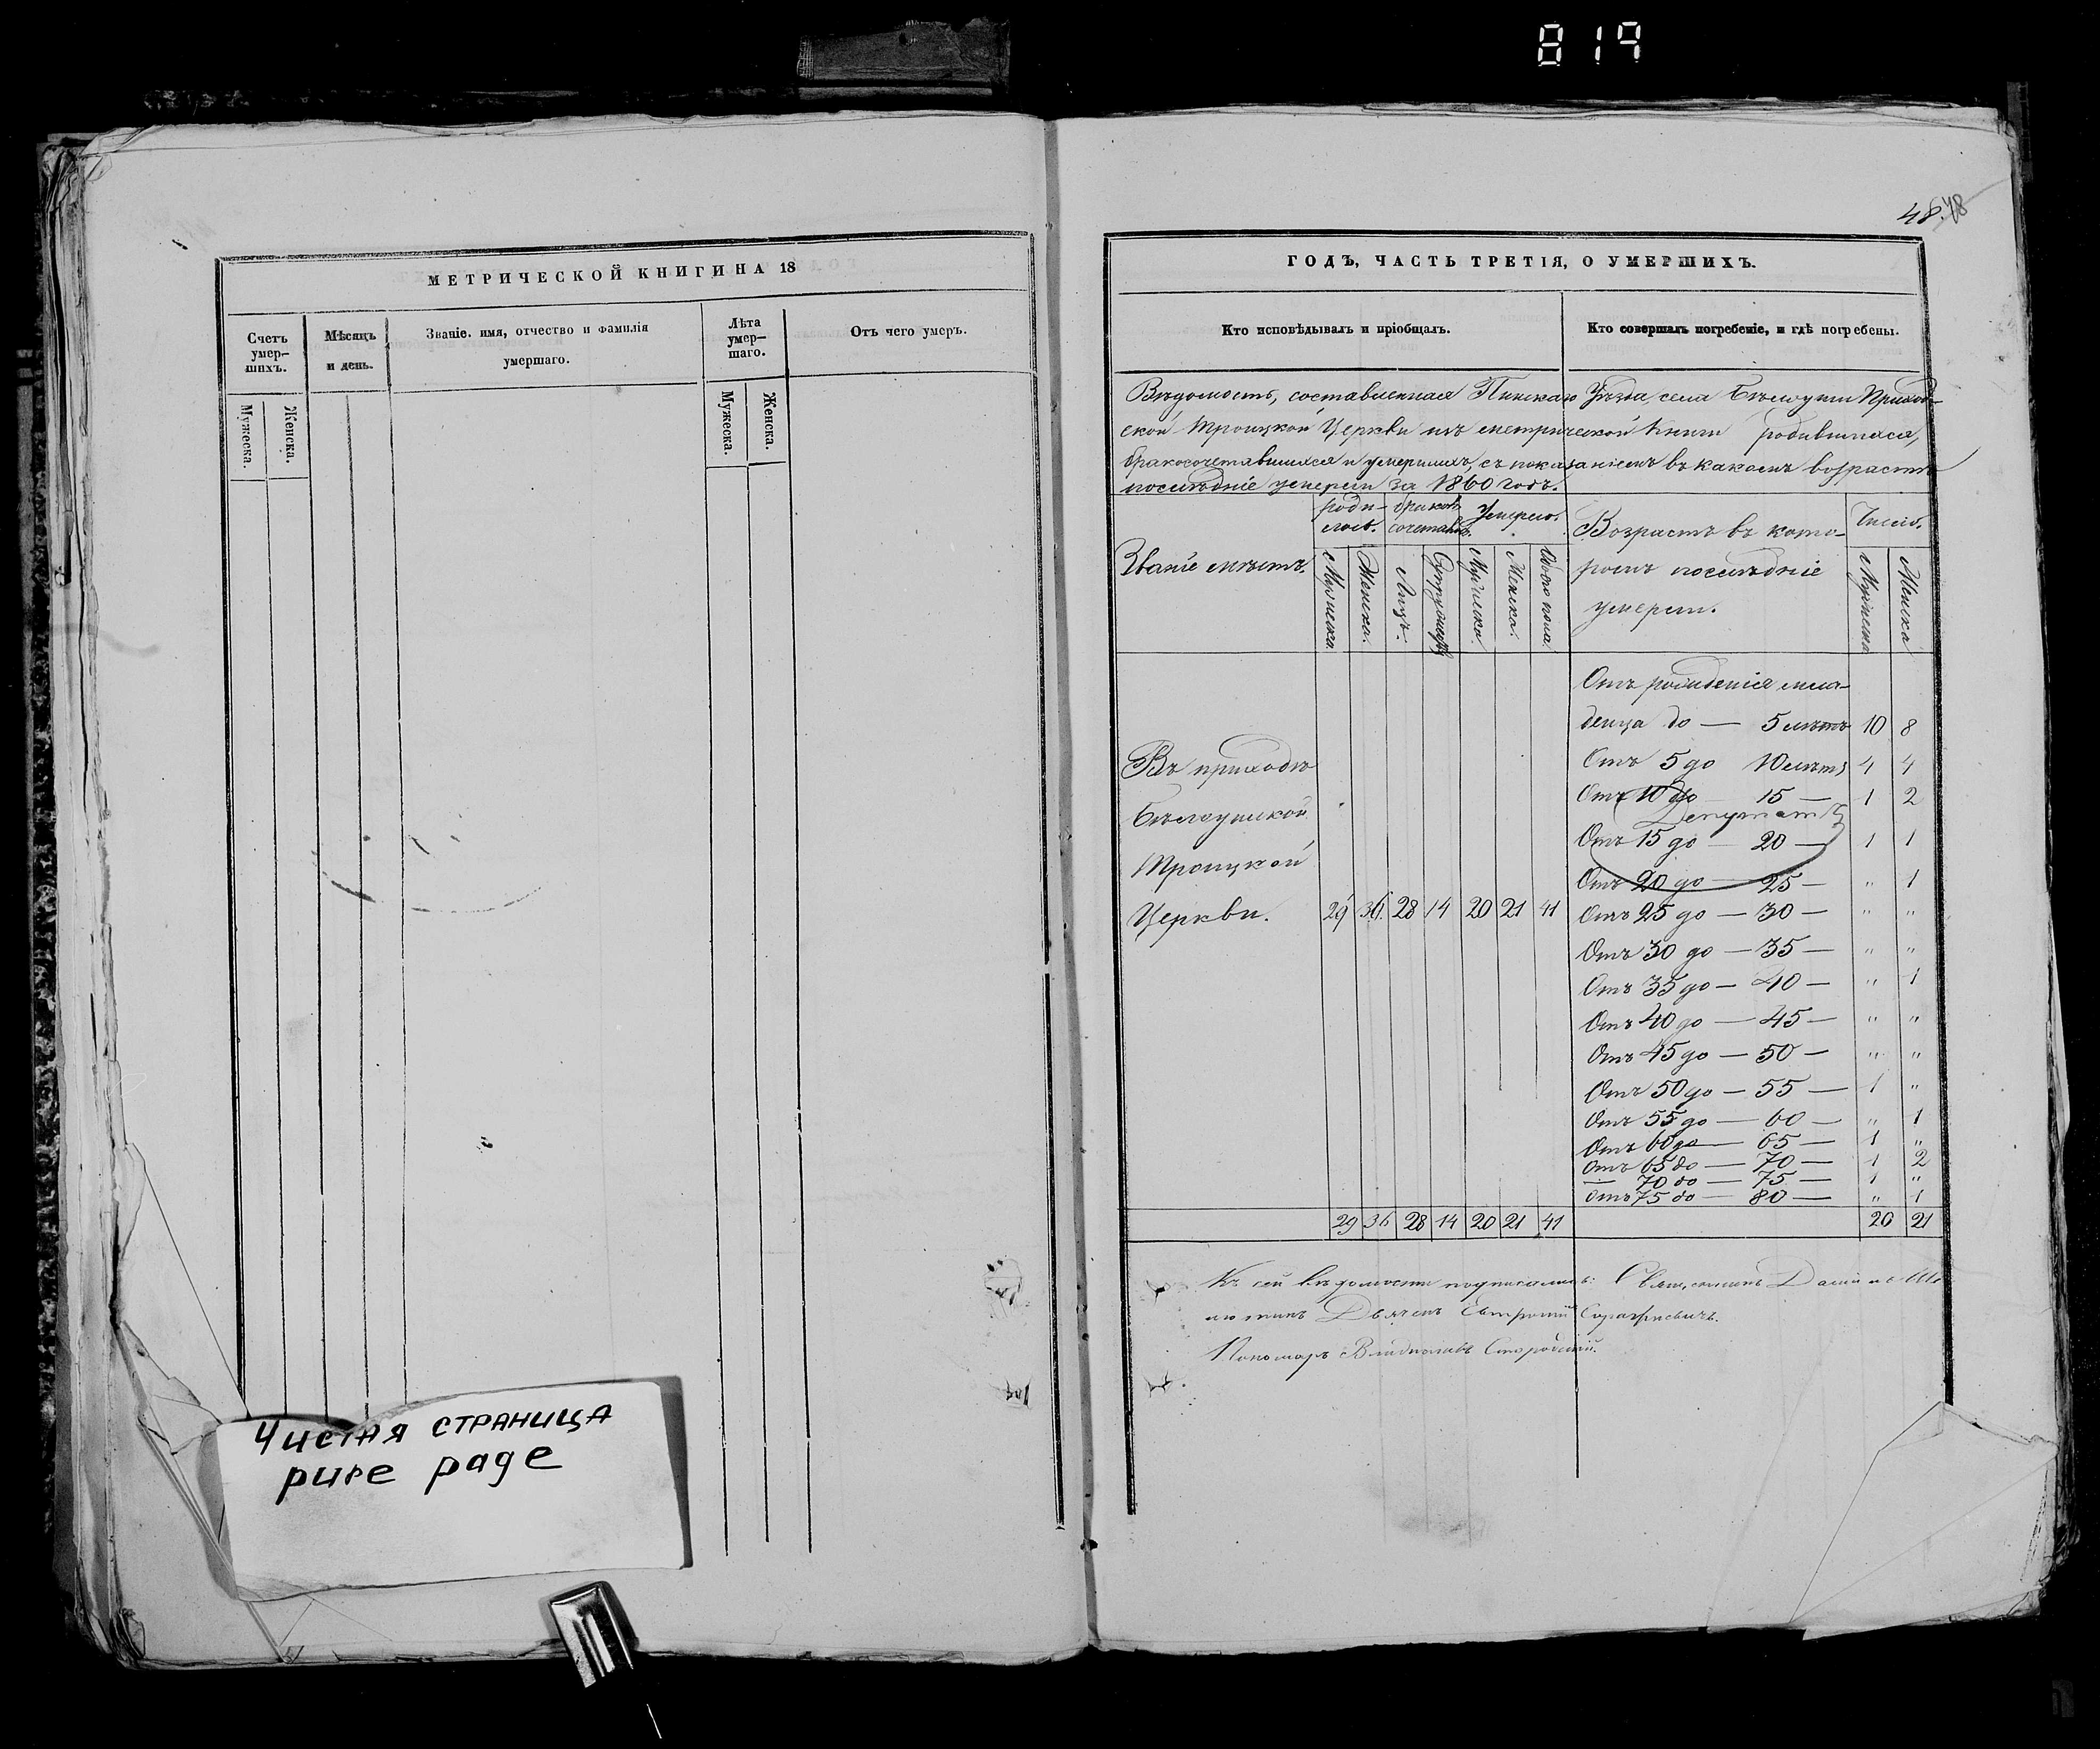 819
МЕТРИЧЕСКОЙ КНИГИ НА 18
Счетъ умер-шихъ.
Мѣсяцъ и день.
Званіе. имя, отчество и фамилія умершаго.
Лѣта умер-шаго.
Отъ чего умеръ.
Мужеска.
Женска.
Мужеска.
Женска.
Чистая страница
pure page
48.
48
ГОДЪ, ЧАСТЬ ТРЕТІЯ, О УМЕРШИХЪ.
Кто исповѣдывалъ и пріобщалъ.
Кто совершалъ погребеніе, и гдѣ погребены.
Вѣдомость, составленная Пинскаго Уѣзда села Приход-
ской Троицкой Церкви изъ метрической Книги родившихся,
бракосочетавшихся и умершихъ, съ показаніемъ въ какомъ возрастѣ
послѣдніе умерли за 1860 годъ.
Званіе мѣстъ.
роди-лось.
бракомъ сочетались.
Умерло.
Возрастъ въ кото-
ромъ послѣдніе
умерли.
Число.
Мужеска.
Женска.
Лицъ.
Супружествъ
Мужеска.
Женска.
Обоего пола.
Мужеска
Женска
Отъ рожденія мла-
денца до — 5 лѣтъ 10 8
Отъ 5 до 10 лѣтъ 4 4
Отъ 10 до 15 — 1 2
Депутатъ
Отъ 15 до — 20 — 1 1
Отъ 20 до — 25 — " 1
Въ приходѣ
Троицкой
Церкви. 29 36 28 14 20 21 41
Отъ 25 до — 30 — " "
Отъ 30 до — 35 — " "
Отъ 35 до — 40 — " 1
Отъ 40 до — 45 — " "
Отъ 45 до — 50 — " "
Отъ 50 до — 55 — 1 "
Отъ 55 до — 60 — " 1
Отъ 60 до — 65 — 1 "
Отъ 65 до — 70 — 1 2
— 70 до — 75 — 1 "
Отъ 75 до — 80 — " 1
29 36 28 14 20 21 41 20 21
Къ сей вѣдомости подписались: Священникъ
Дьячекъ
Пономарь